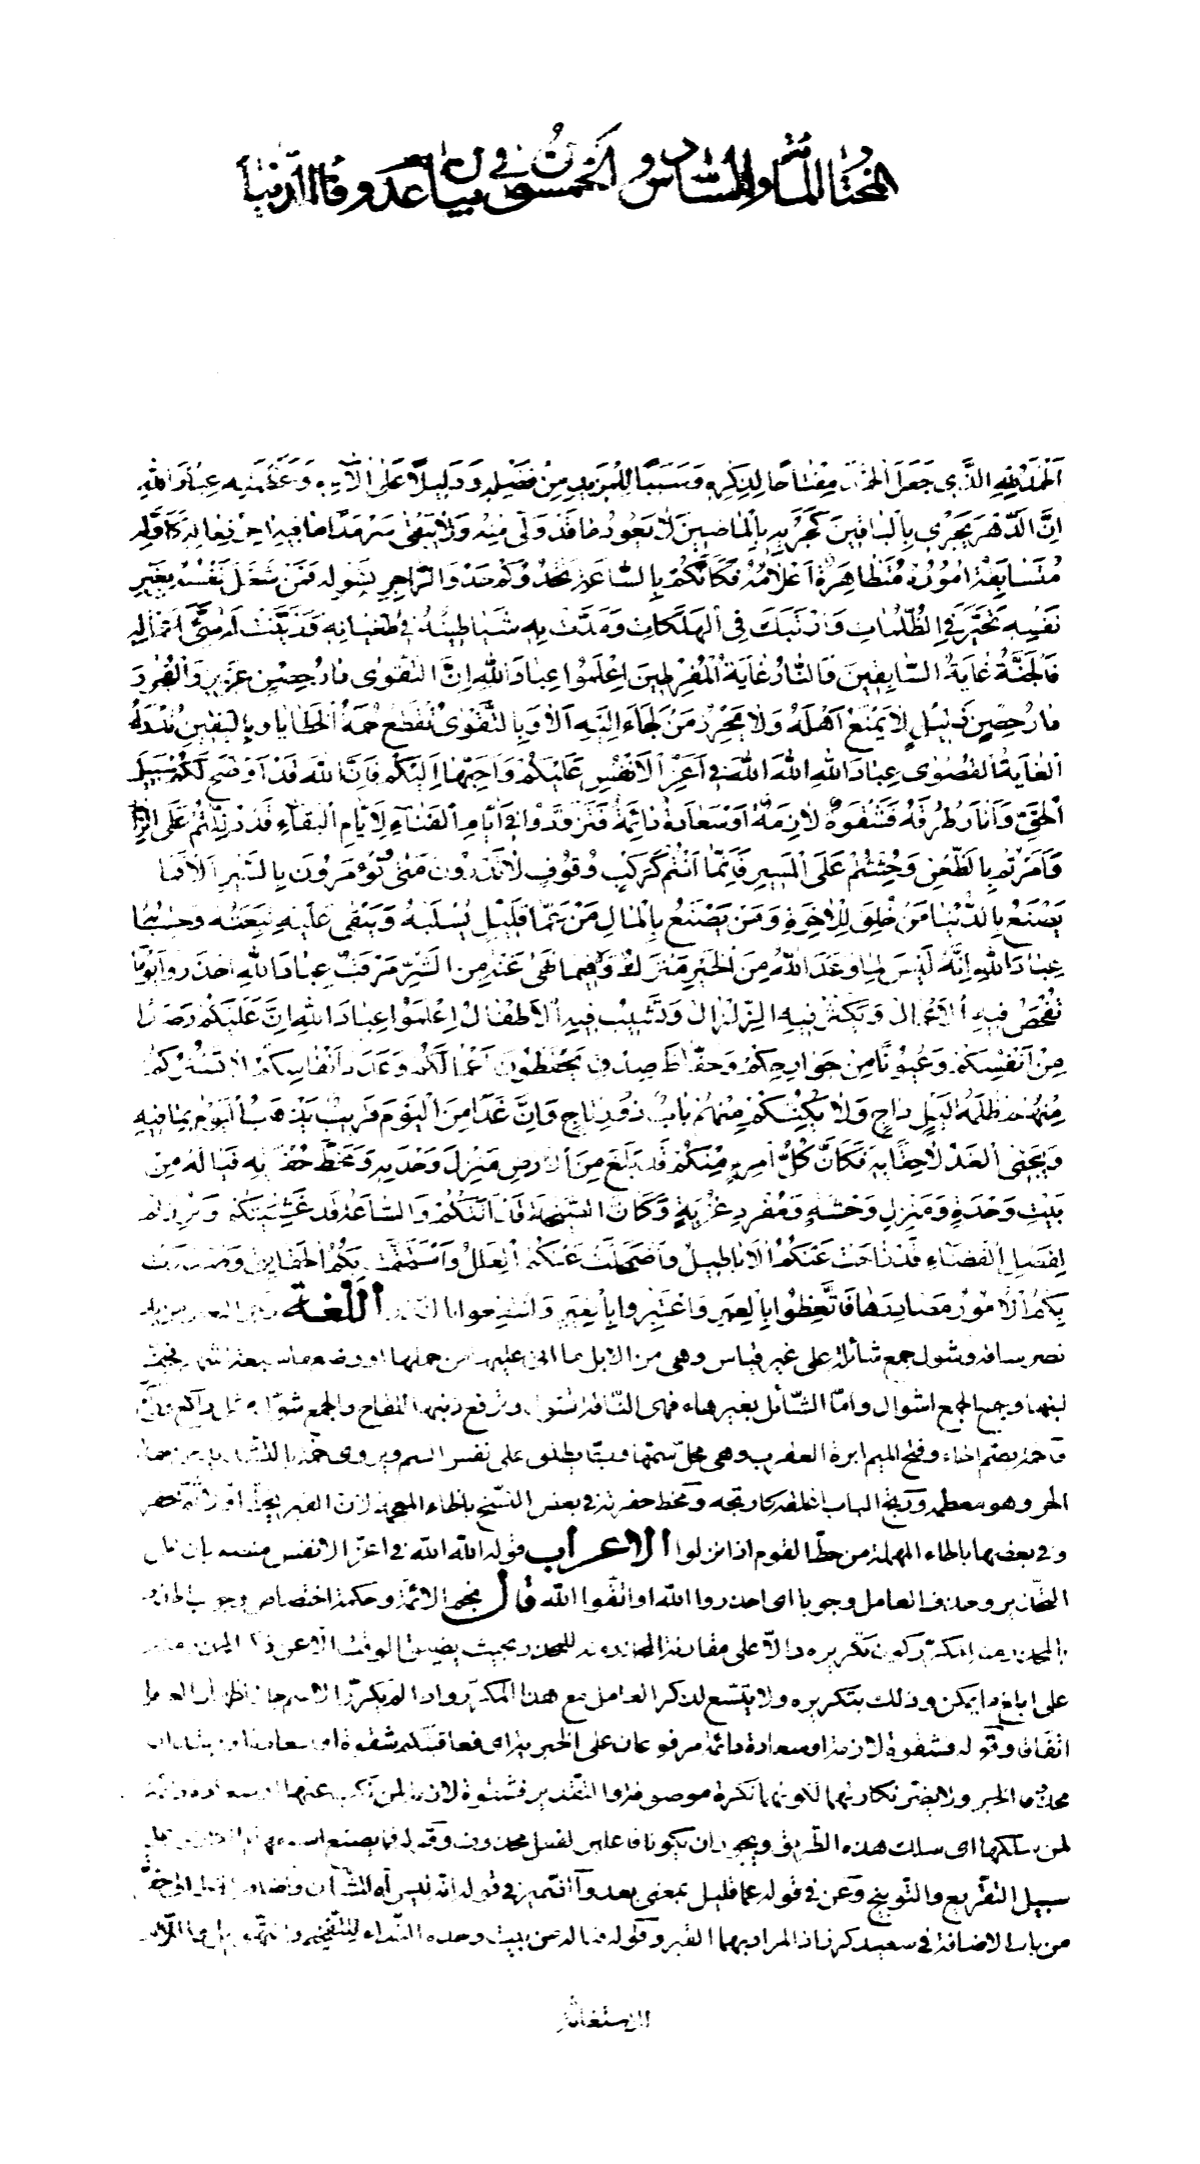 المختار المأة والسادس والخمسون في
الحمد لله الذي جعل الحمد مفتاحا لذكره وسببا للمزيد من فضله ودليلا على آلائه وعظمته عباد الله
إن الدهر يجري بالباقين كجريه بالماضين لا يعود ما قد ولى منه ولا يبقى سرمدا ما فيه آخر فعاله كأوله
متسابقة أموره متظاهرة أعلامه فكأنكم بالساعة تحدوكم حدو الزاجر بشوله فمن شغل نفسه بغير
نفسه تحير في الظلمات وارتبك في الهلكات ومدت به شياطينه في طغيانه وزينت له سيئ أعماله
فالجنة غاية السابقين والنار غاية المفرطين اعلموا عباد الله إن التقوى دار حصن عزيز والفجور
دار حصن ذليل لا يمنع أهله ولا يحرز من لجأ إليه ألا وبالتقوى تقطع حمة الخطايا وباليقين تدرك
الغاية القصوى عباد الله الله الله في أعز الأنفس عليكم وأحبها إليكم فإن الله قد أوضح لكم سبيل
الحق وأنار طرقه فشقوة لازمة أو سعادة دائمة فتزودوا في أيام الفناء لأيام البقاء قد دللتم على الزاد
وأمرتم بالظعن وحثثتم على المسير فإنما أنتم كركب وقوف لا تدرون متى تؤمرون بالسير ألا فما
يصنع بالدنيا من خلق للآخرة وما يصنع بالمال من عما قليل يسلبه وتبقى عليه تبعته وحسابه
عباد الله إنه ليس لما وعد الله من الخير مترك ولا فيما نهى عنه من الشر مرغب عباد الله احذروا يوما
تفحص فيه الأعمال ويكثر فيه الزلزال وتشيب فيه الأطفال اعلموا عباد الله إن عليكم رصدا
من أنفسكم وعيونا من جوارحكم وحفاظ صدق يحفظون أعمالكم وعدد أنفاسكم لا تستركم
منهم ظلمة ليل داج ولا يكنكم منهم باب ذو رتاج وإن غدا من اليوم قريب يذهب اليوم بما فيه
ويجيء الغد لاحقا به فكأن كل امرئ منكم قد بلغ من الأرض منزل وحدته ومخط حفرته فيا له من
بيت وحدة ومنزل وحشة ومفرد غربة وكأن الصيحة قد أتتكم والساعة قد غشيتكم وبرزتم
لفصل القضاء قد زاحت عنكم الأباطيل واضمحلت عنكم العلل واستحقت بكم الحقايق وصدرت
بكم الأمور مصادرها فاتعظوا بالعبر واعتبروا بالغير وانتفعوا بالنذر اللغة
نصر ساقه وشول جمع شائلة على غير قياس وهي من الابل ما اتى عليها من حملها او وضعها سبعة اشهر فيجف
لبنها وجمع الجمع اشوال وامّا الشّائل بغير هاء فهى النّاقة تشول وترفع ذنبها للقاح والجمع شوّل مثل راكع وركّع
وحمة بضم الحاء وفتح الميم ابرة العقرب وهى محلّ سمّها وربّما يطلق على نفس السم ويروى حمّة بالتشديد من حمة
الحر وهو معظمه ورتج الباب اغلقه كارتجه ومخط حفرته في بعض النسّخ بالخاء المعجمة لان القبر يخطّ اوّلا ثمّ يحفر
وفي بعضها بالحاء المهملة من حطّ القوم اذا نزلوا الاعراب قوله الله الله في اعزّ الانفس منصوبان على
التحذير وحذف العامل وجوبا اى احذروا الله او اتّقوا الله قال نجم الائمّة وحكمة اختصاص وجوب الحذف
بالمحذر منه المكرّر كون تكريره دالاّ على مقارنة المحذر منه للمحذر بحيث يضيق الوقت الّا عن ذكر المحذر منه
على ابلغ ما يمكن وذلك بتكريره ولا يتسّع لذكر العامل مع هذا المكرّر واذا لم يكرّر الاسم جاز اظهار العامل
اتفاقا وقوله فشقوة لازمة او سعادة دائمة مرفوعان على الخبريّة اى فعاقبتكم شقوة او سعادة
محذوفا الخبر ولا يضرّ نكارتهما لكونهما نكرة موصوفة والتّقدير فشقوة لازمة لمن نكب عنها او سعادة دائمة
لمن سلكها اى سلك هذه الطّريق ويجوز ان يكونا فاعلين لفعل محذوف وقوله فما يصنع استفهام
سبيل التقريع والتّوبيخ وعن في قوله عما قليل بمعنى بعد والضّمير في قوله انّه ليس آه للشّأن
من باب الاضافة في سعيد كرز اذ المراد بهما القبر وقوله فيا له من بيت وحده النّداء للتفخيم
الاستغاثة